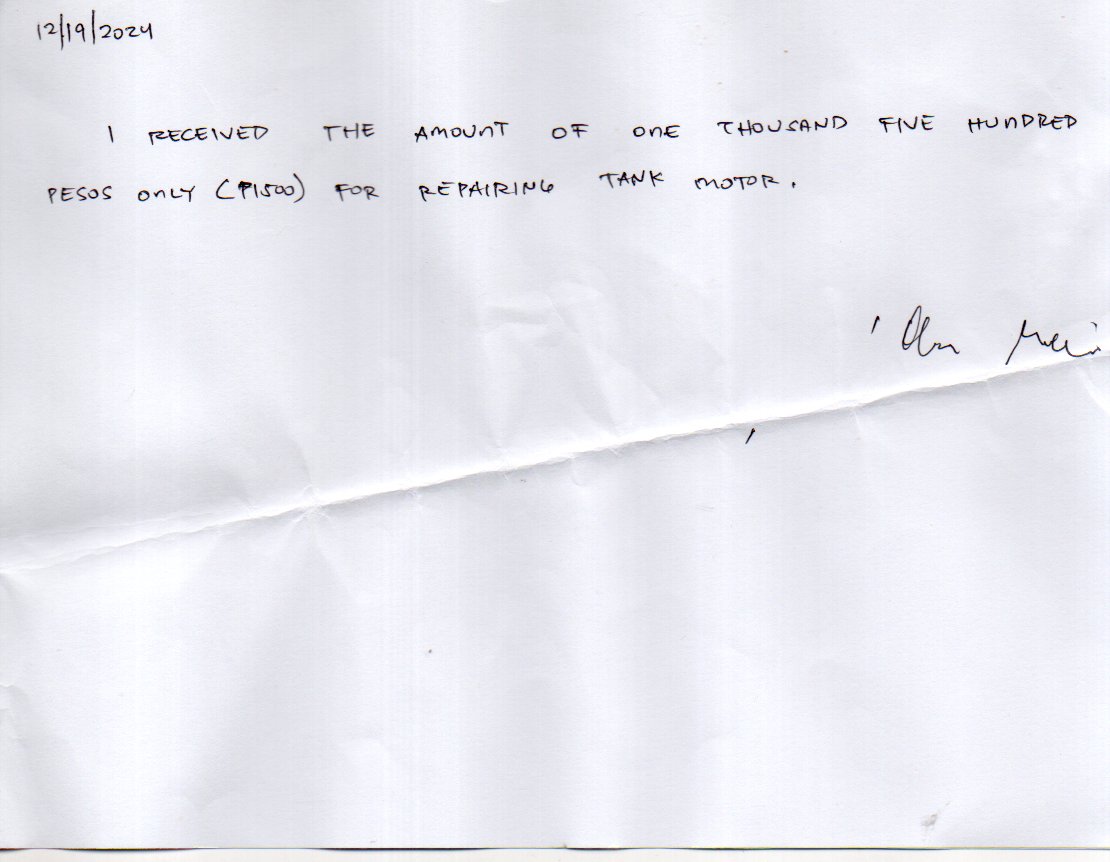 12/19/2024
I RECEIVED THE AMOUNT OF ONE THOUSAND FIVE HUNDRED
PESOS ONLY (₱1500) FOR REPAIRING TANK MOTOR.